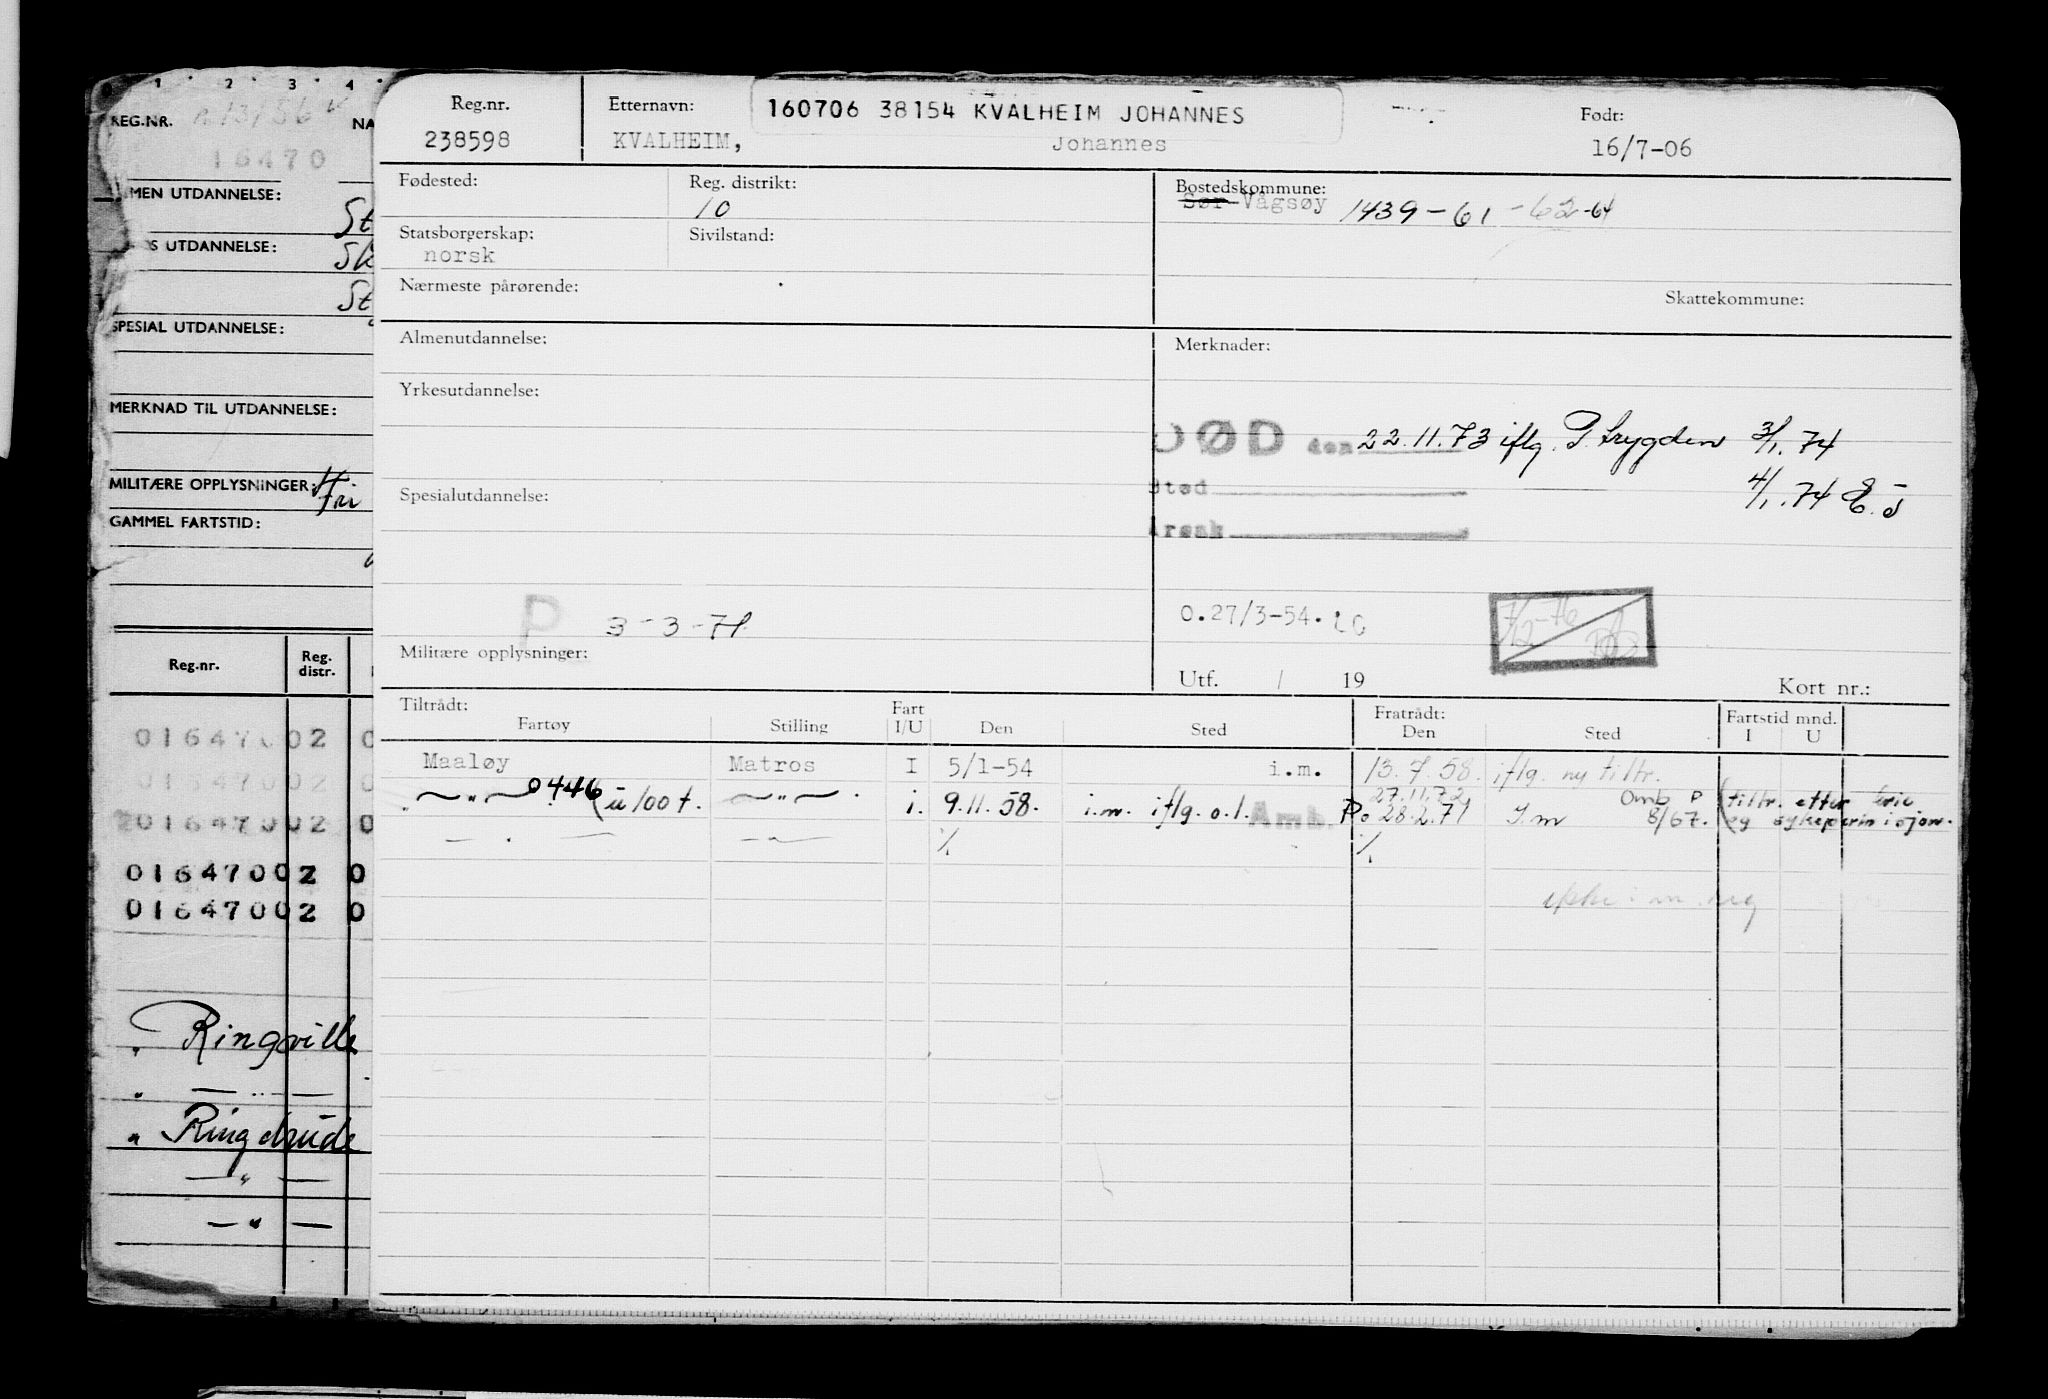 1 2 3 4
REG.NR. NA
16470
MEN UTDANNELSE:
St
S UTDANNELSE:
Sk
St
SPESIAL UTDANNELSE:
MERKNAD TIL UTDANNELSE:
MILITÆRE OPPLYSNINGER: Fri
GAMMEL FARTSTID:
Reg.nr. Reg. distr.
01647002 0
01647002
01647002 0
01647002 0
01647002 0
" Ringville
" — " —
" Ringdrude
— " —
— " —
Reg.nr. Etternavn: 160706 38154 KVALHEIM JOHANNES Født:
238598 KVALHEIM, Johannes 16/7-06
Fødested: Reg. distrikt: Bostedskommune:
10 Sør-Vågsøy 1439-61-62-64
Statsborgerskap: Sivilstand:
norsk
Nærmeste pårørende:
Skattekommune:
Almenutdannelse: Merknader:
Yrkesutdannelse:
DØD den 22.11.73 iflg. P.trygden 3/1.74
Spesialutdannelse: Sted 4/1.74 E.J
Årsak
P 3-3-71
O.27/3-54. 7/2-76
Militære opplysninger:
Utf. / 19 Kort nr.:
Tiltrådt: Fart Fratrådt: Fartstid mnd.
Fartøy Stilling I/U Den Sted Den Sted I U
Maaløy Matros I 5/1-54 i.m. 13.7.58. iflg. ny tiltr.
27.11.72
— " — 0446 (u/100 t. — " — . i. 9.11.58. i.m. iflg. o.l. Amb. Po 28.2.71 I.m Omb P 8/67. (tiltr. etter ferie
og sykeperm i sjøm.
— . — — " — % %
ikke i m.reg